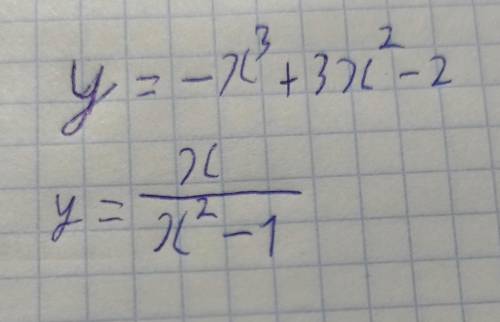 y = -x³ + 3x² - 2
y = x / (x² - 1)